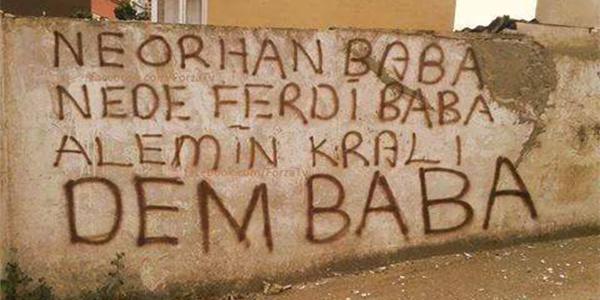 NEORHAN BABA
NEDE FERDİ BABA
ALEMİN KRALI
DEM BABA